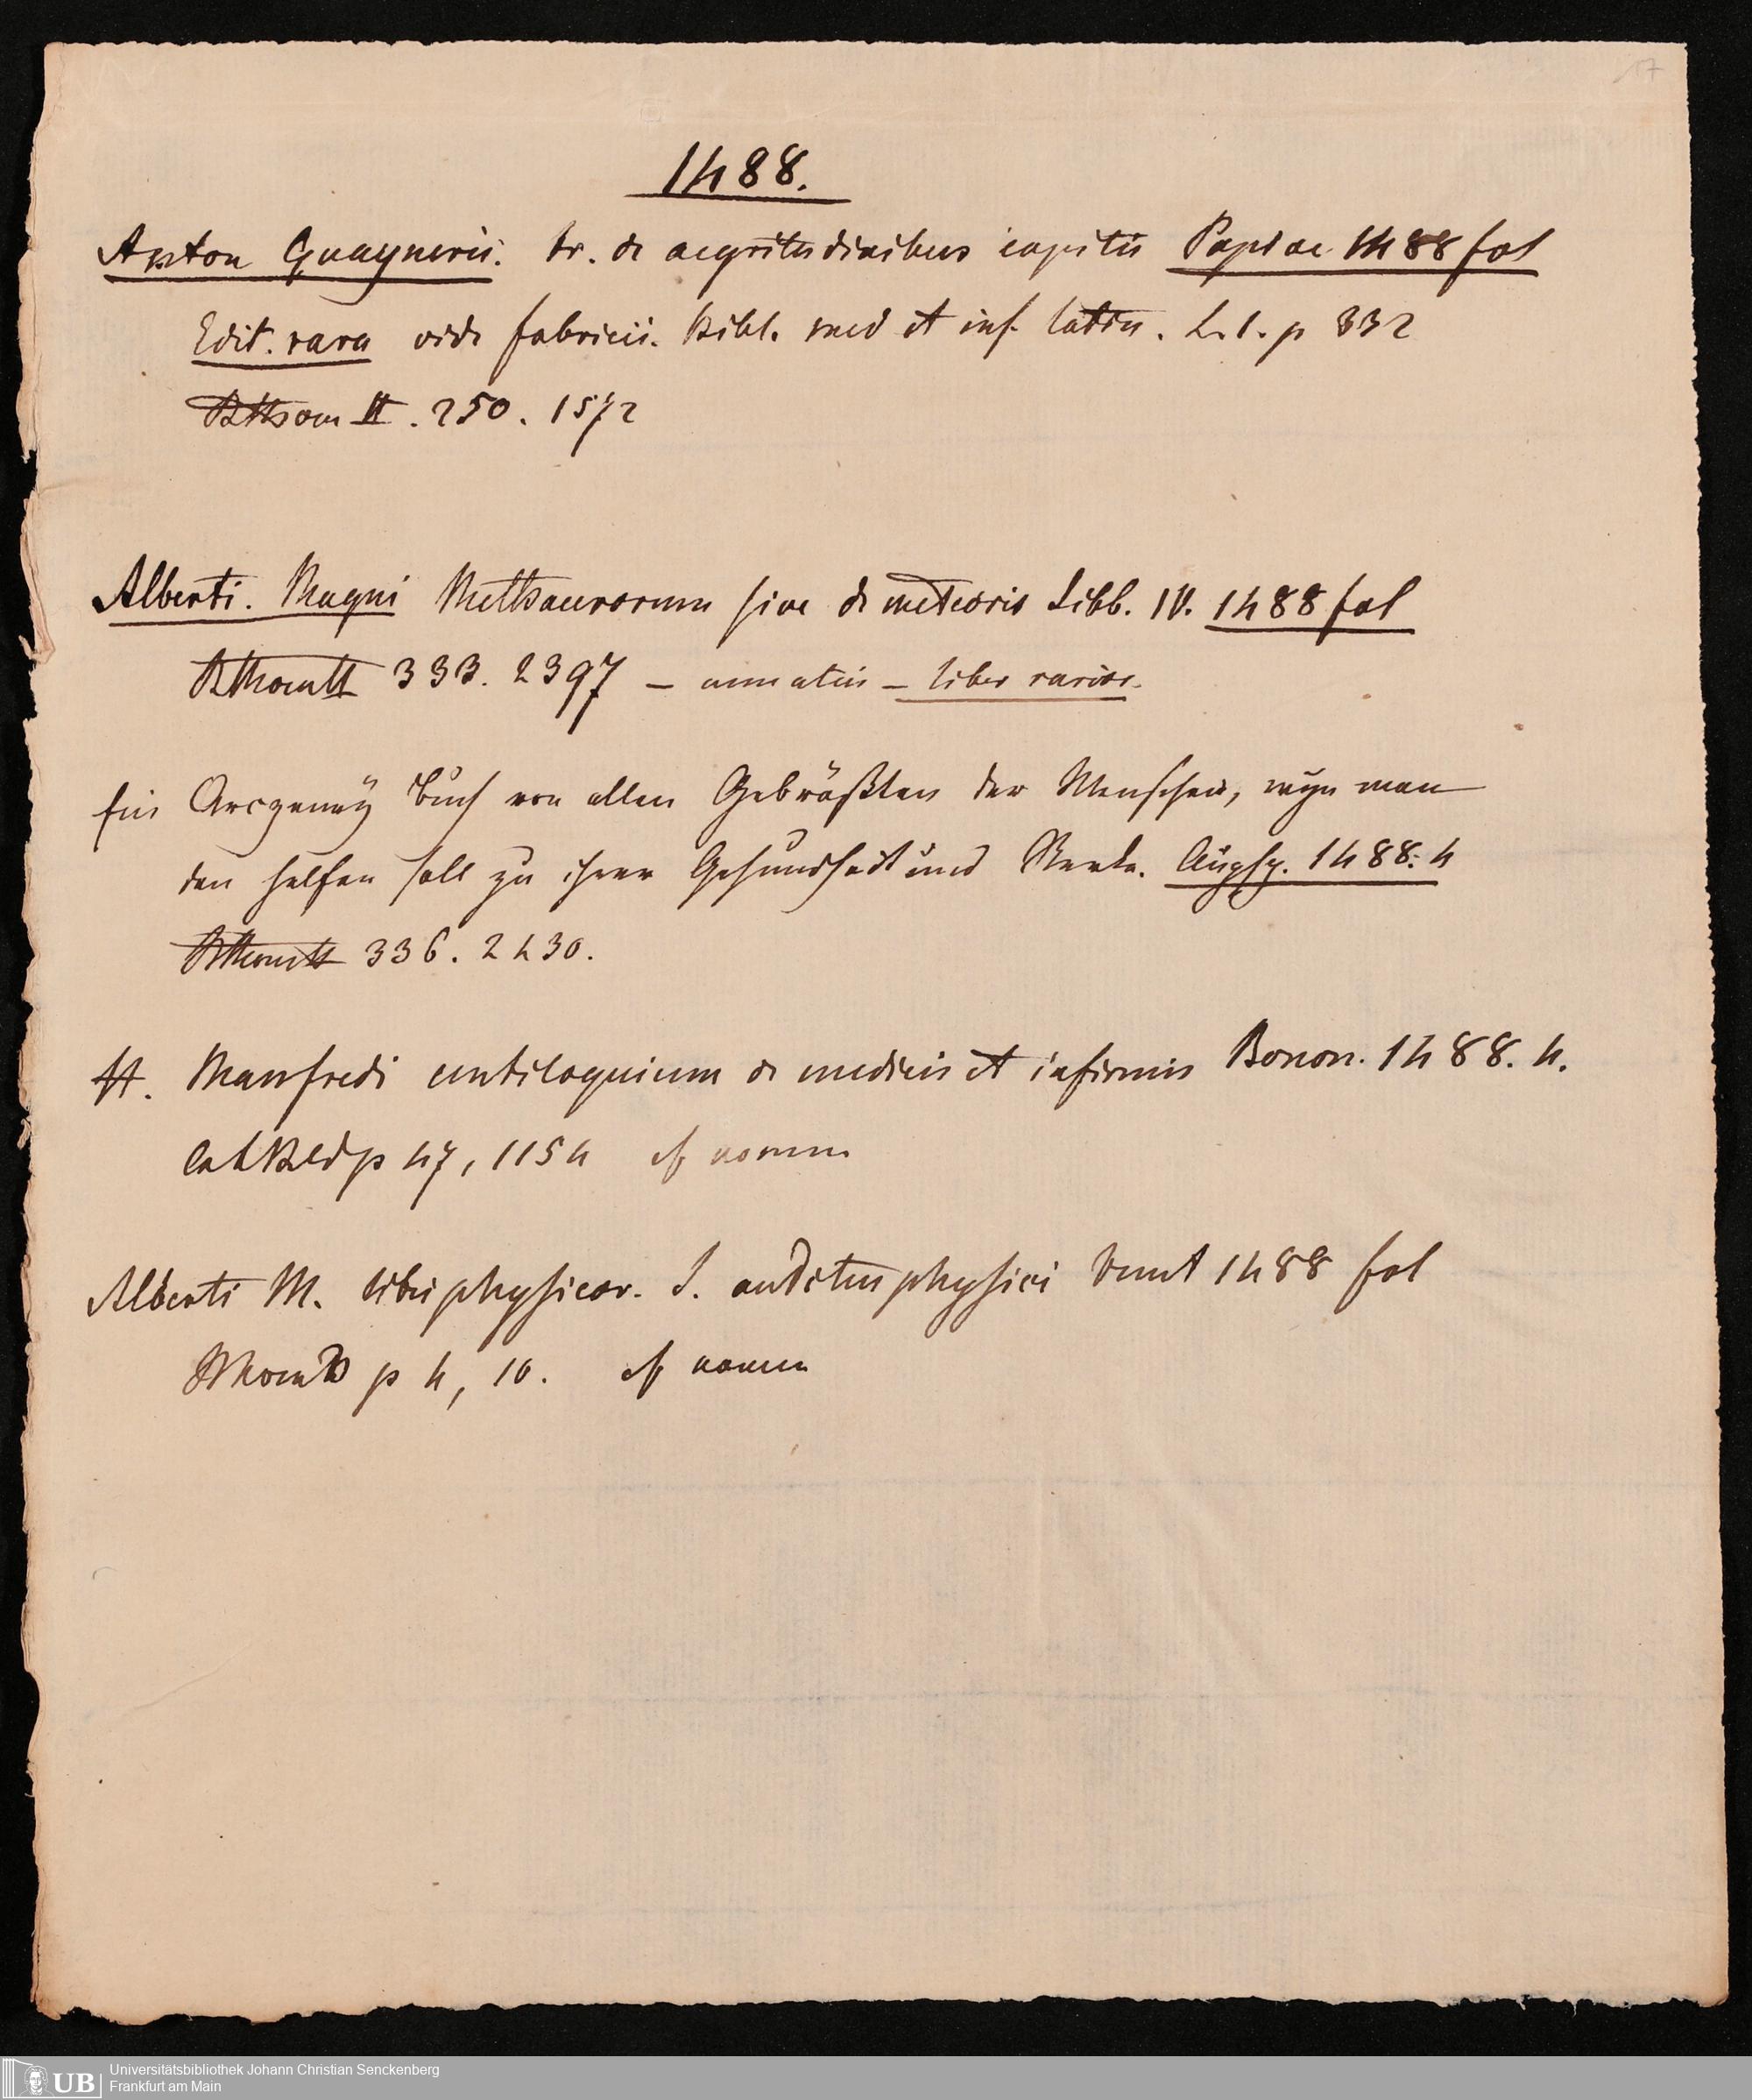 17
1488.
Anton Guaynerii. tr. de aegritudinibus capitis Papiae 1488 fol
Edit. rara vide fabricii. Bibl. med et inf. latin. L. 1. p 332
II. 250. 1572
Alberti. Magni Metheaurorum sive de meteoris Libb. IV. 1488 fol
333. 2397 — – liber rarior.
Ein Arczeney Buch von allen Gebräßten der Menschen, wye man
den helfen soll zu ihrer Gesundheit und Sterke. Augsp. 1488. 4
336. 2430.
H. Manfredi centiloquium de medicis et infirmis Bonon. 1488. 4.
p 47, 1154
Alberti M. libri physicor. S. auditus physici Venet 1488 fol
p 4, 10.
UB Universitätsbibliothek Johann Christian Senckenberg
Frankfurt am Main